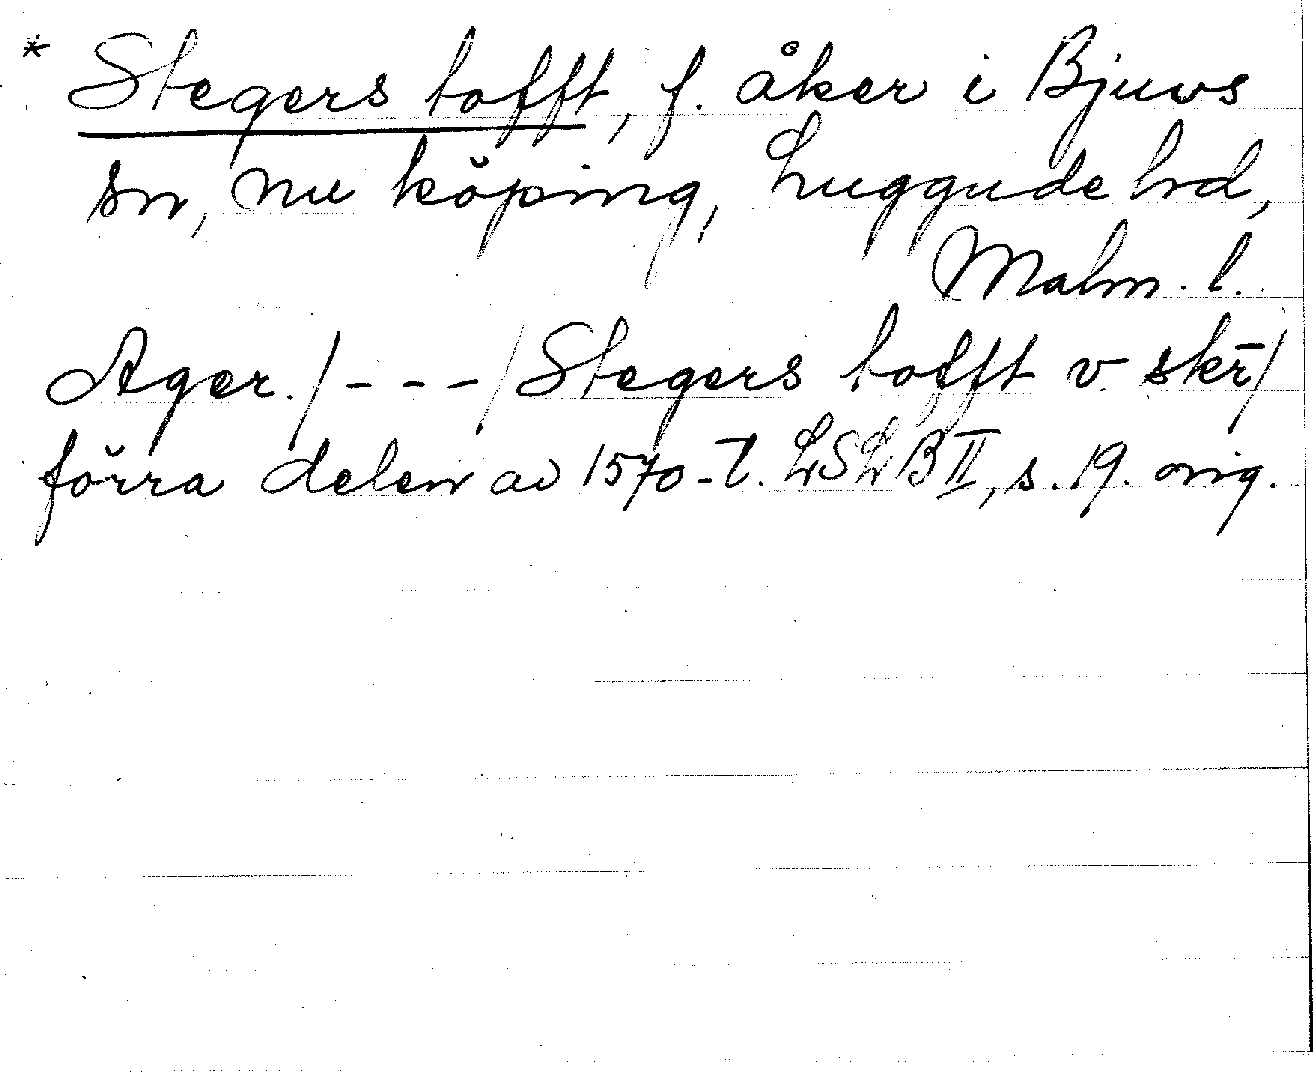 * Stegers tofft, f. åker i Bjuvs
sn, nu köping, Luggude hd,
Malm. l.
Ager. /---/ Stegers tofft v skr̄/
förra delen av 1570-t. LSLB II, s. 19. orig.